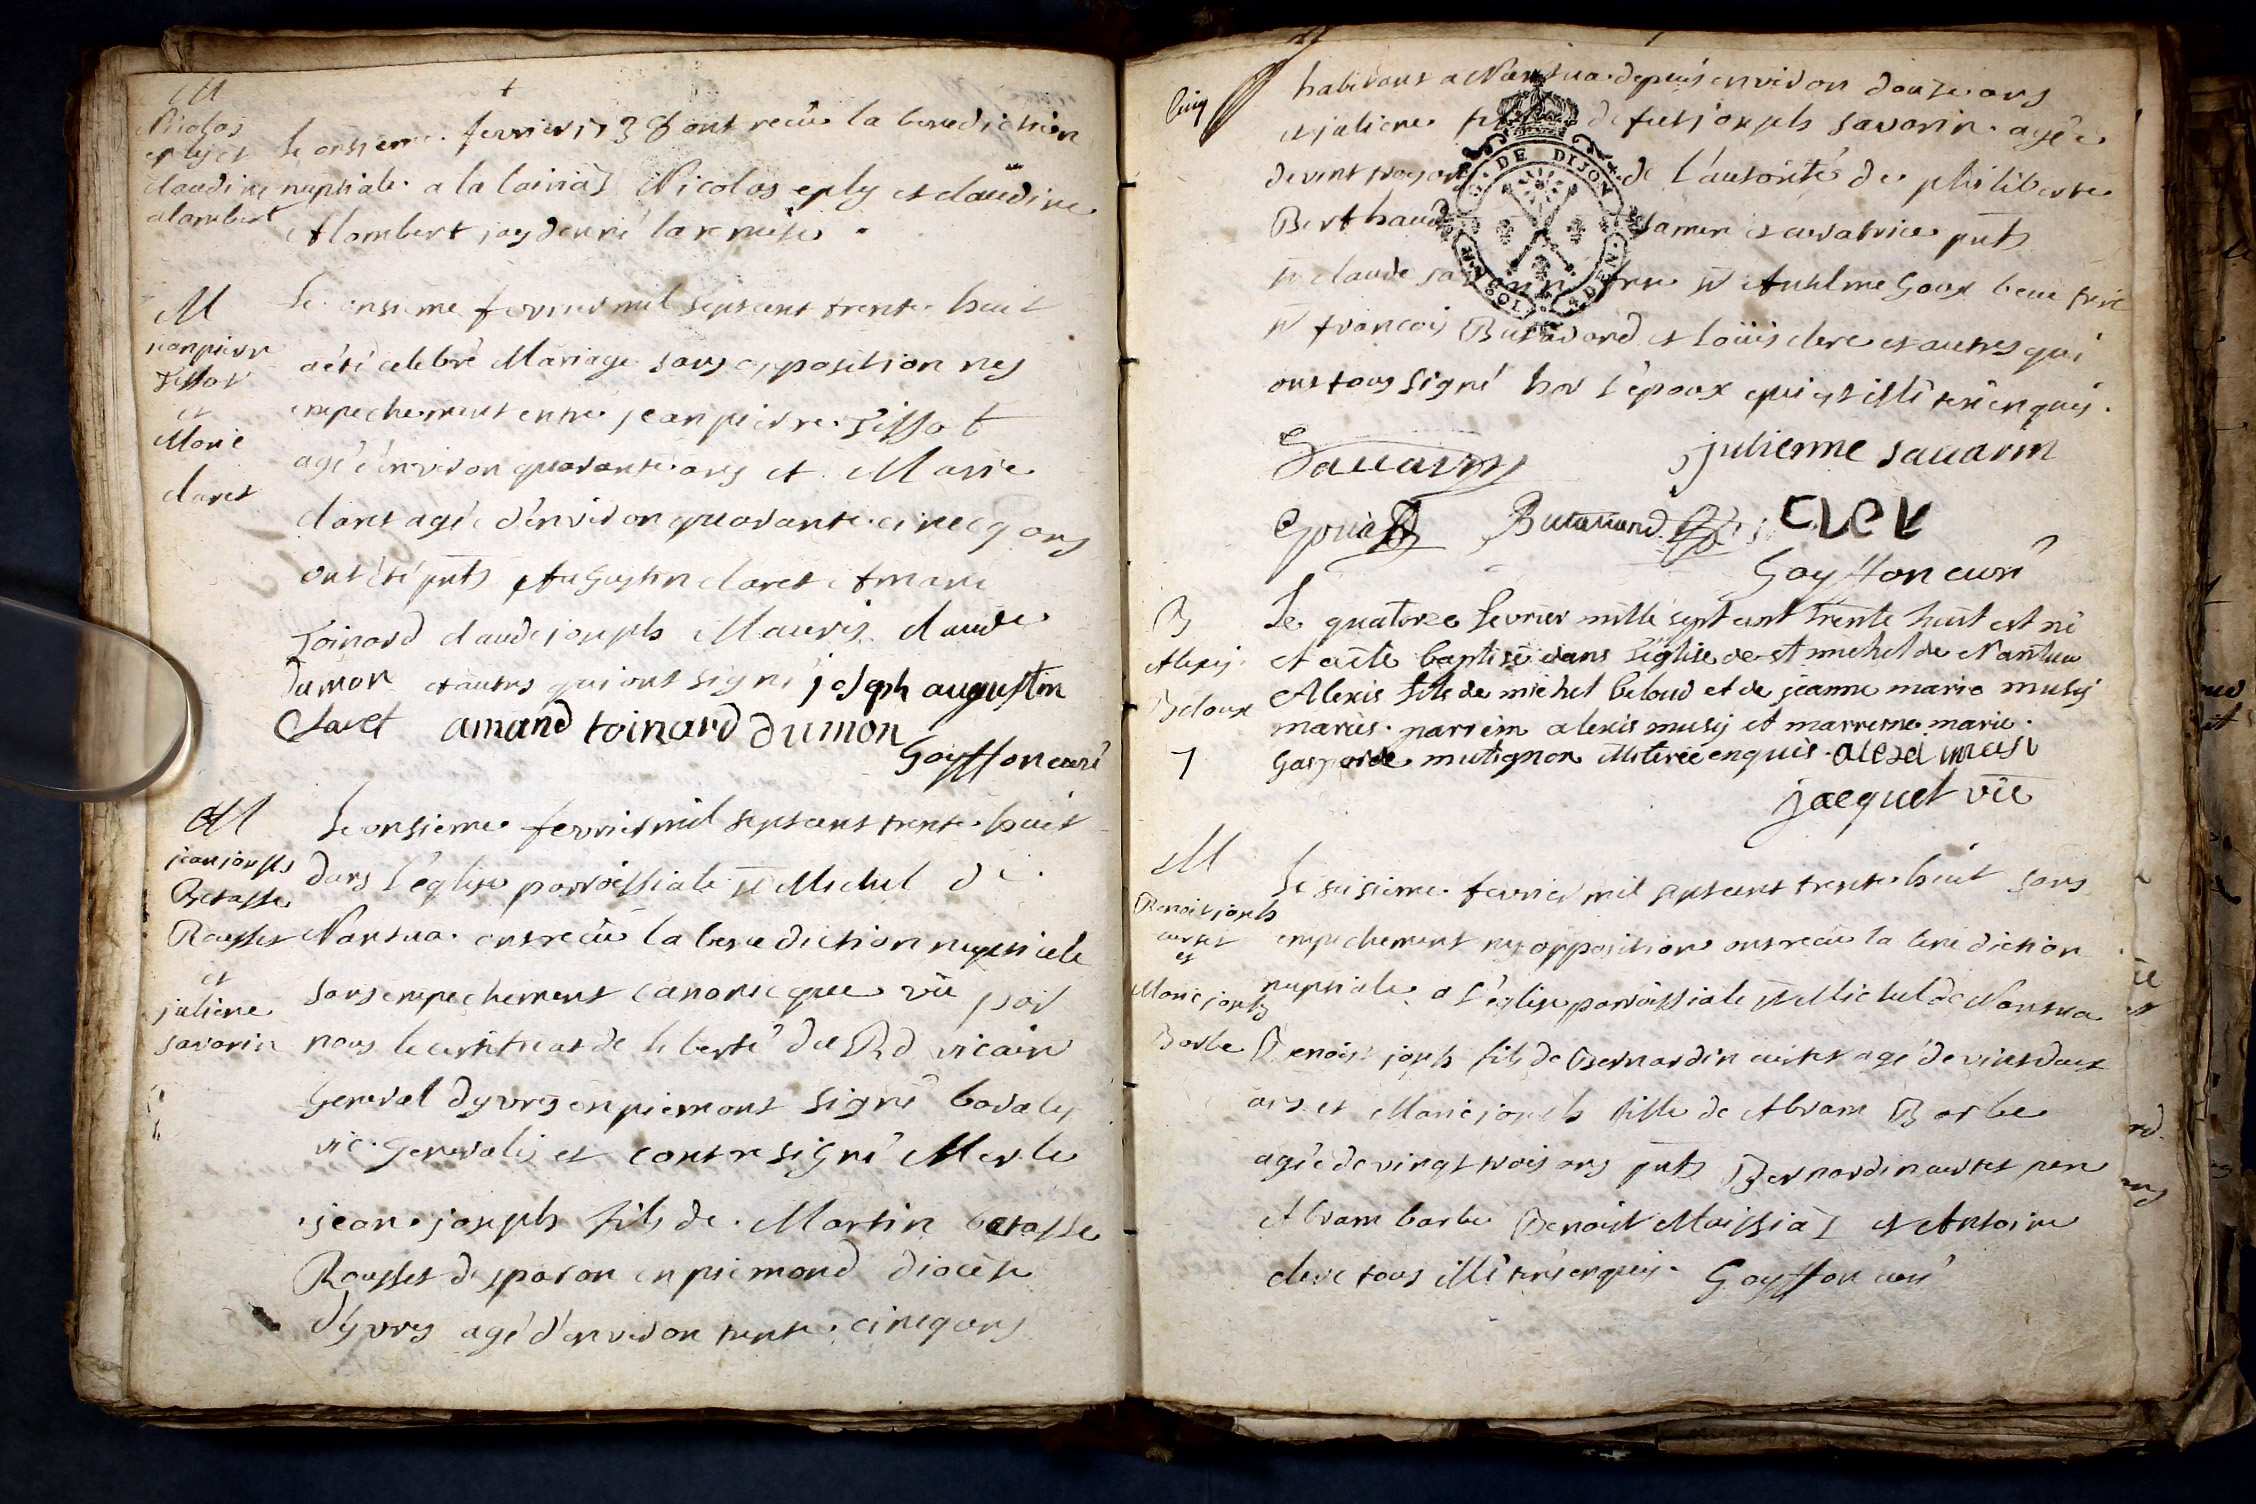 M
Nicolas
eply et
claudine
alambert
Le onsieme fevrier 1738 ont reçüe la benediction
nuptiale a la Nicolas eply et claudine
Alambert jay donné la remise
M
jeanpierre
Tissot
et
Marie
claret
Le onsieme fevrier mil septcent trente huit
a été celebré Mariage sans opposition ney
empechement entre jeanpierre Tissot
agé environ quarante ans et Marie
claret agée d'environ quarante cinecq ans
ont été pnts Augustin claret Amand
Toinard claude joseph Mauris claude
dumon et autres qui ont signé joseph augustin
Claret amand toinard dumon
Goyffon curé
M
jean joseph
Betasse
Rousset
et
juliene
savarin
Le onsieme fevrier mil septcent trente huit
dans l'eglise parroissiale st Michel de
Nantua ont reçüe la benediction nuptiale
sans empechement canonicque vü par
nous le certificat de liberté du Rd vicaire
General dyvrés en piemont signé
vic generalis et contresigné Merle
jean joseph fils de Martin betasse
Rousset de sparon en piemond diocèse
d'yvrés agé d'environ trente cinq ans
habitant a Nantua depuis environ douse ans
et juliene fille de fut joseph savarin agée
de vint trois ans de l'autorité de philiberte
Berthaud sa mere et curatrice pnts
sr claude savarin frere sr Anselme Goux beau frere
sr francois Butavand et Loüis clerc et autres qui
ont tous signé hor l'epoux qui est illiteré enquis.
Sauarin julienne sauarin
Gouia Butauand CLER
Goyffon curé
B
Alexis
Beloux
7
Le quatorze fevrier mille sept cent trente huit est né
et a été baptisé dans l'église de st michel de Nantua
Alexis fils de michel beloud et de jeanne marie musy
mariés. parrein alexis musy et marreine marie
Gasparde mutignon illiterée enquise. alexi musi
jacquet vic
M
Benoit joseph
et
Marie joseph
Barbe
Le seisieme fevrier mil septcent trente huit sans
empechement ny opposition ont reçue la benediction
nuptiale a l'église parroissiale st Michel de Nantua
Benoist joseph fils de Bernardin agé de vint deux
ans et Marie joseph fille de Abram Barbe
agée de vingt trois ans pnts Bernardin pere
Abram barbe Benoist Maissiat et Antoine
clerc tous illiteré enquis. Goyffon curé